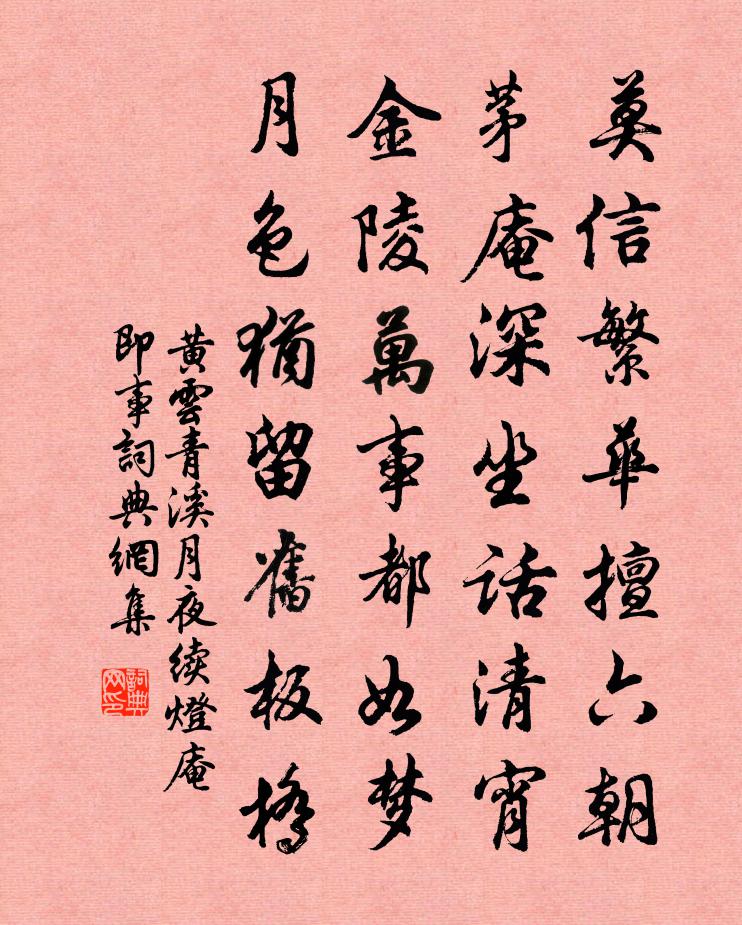 莫信繁華擅六朝
茅庵深坐話清宵
金陵萬事都如梦
月色猶留舊板橋
黄雲青溪月夜续燈庵
即事詞典網集
詞典
网印